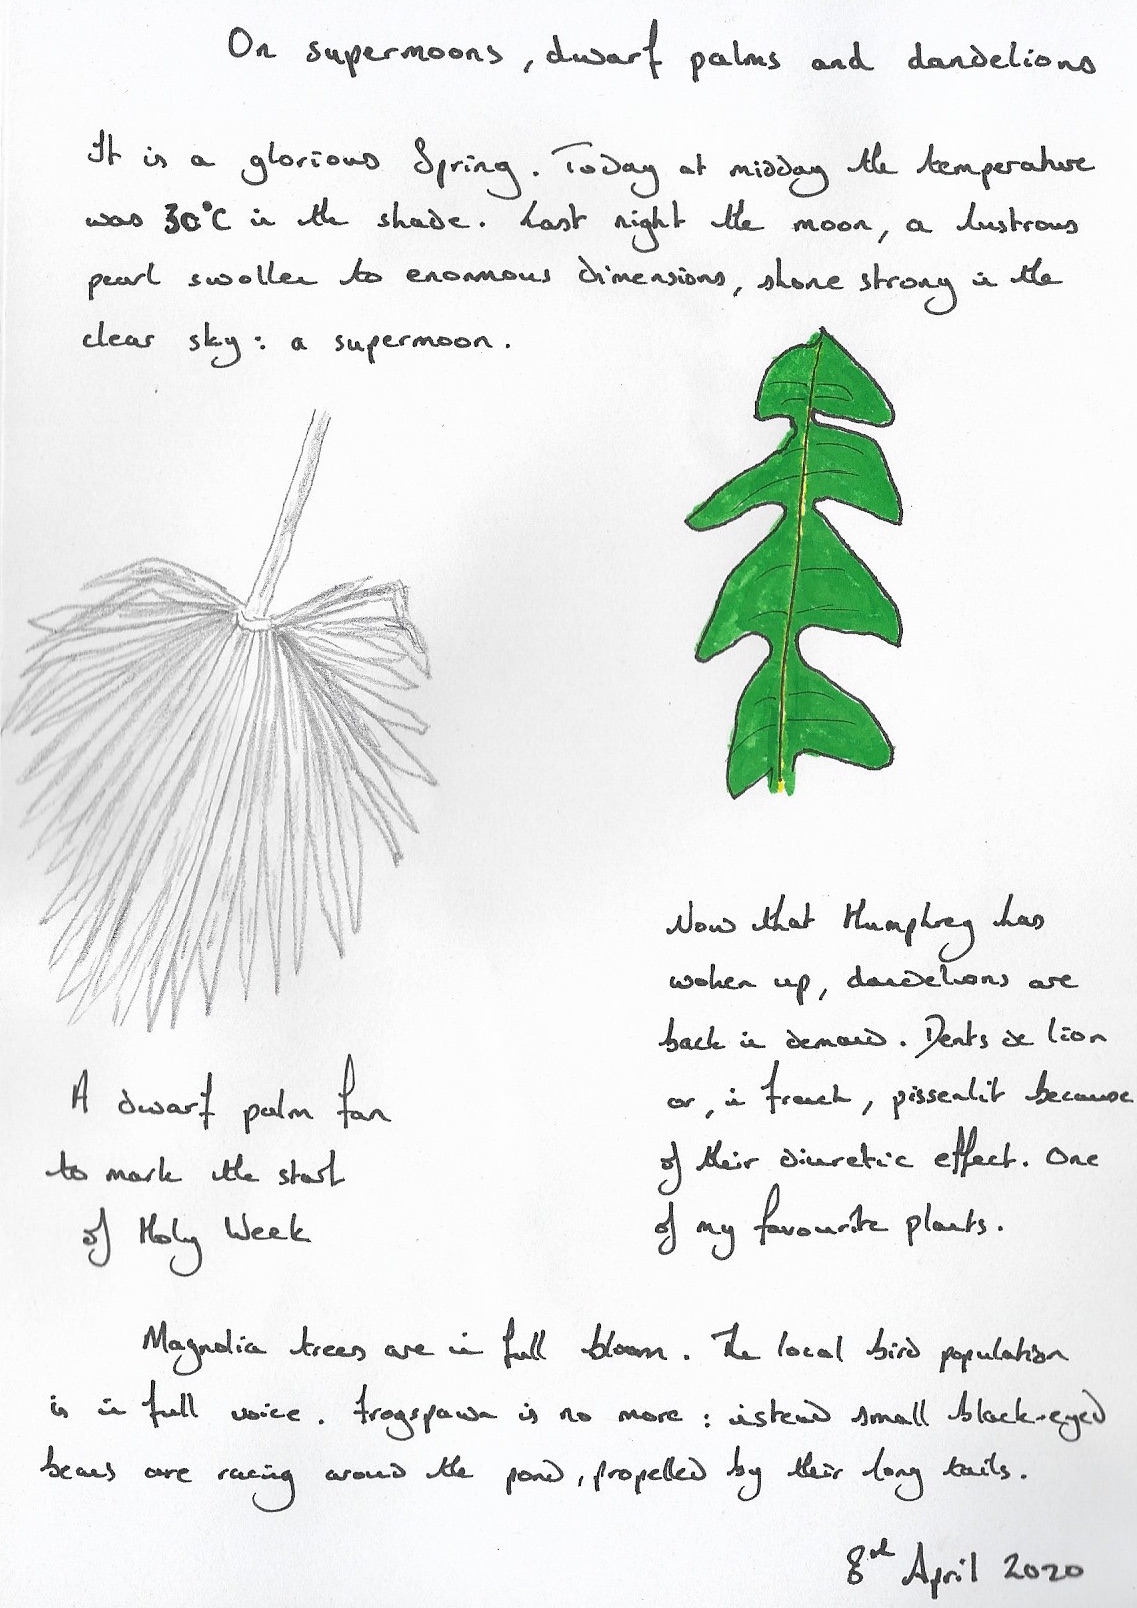 On supermoons, dwarf palms and dandelions
It is a glorious Spring. Today at midday the temperature
was 30°C in the shade. Last night the moon, a lustrous
pearl swollen to enormous dimensions, shone strong in the
clear sky: a supermoon.
A dwarf palm fan
to mark the start
of Holy Week
Now that Humphrey has
woken up, dandelions are
back in demand. Dents de lion
or, in french, pissenlit because
of their diuretic effect. One
of my favourite plants.
Magnolia trees are in full bloom. The local bird population
is in full voice. Frogspawn is no more: instead small black-eyed
beans are racing around the pond, propelled by their long tails.
8th April 2020